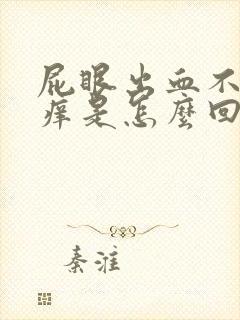 屁眼出血不
痒是怎麽回
秦淮